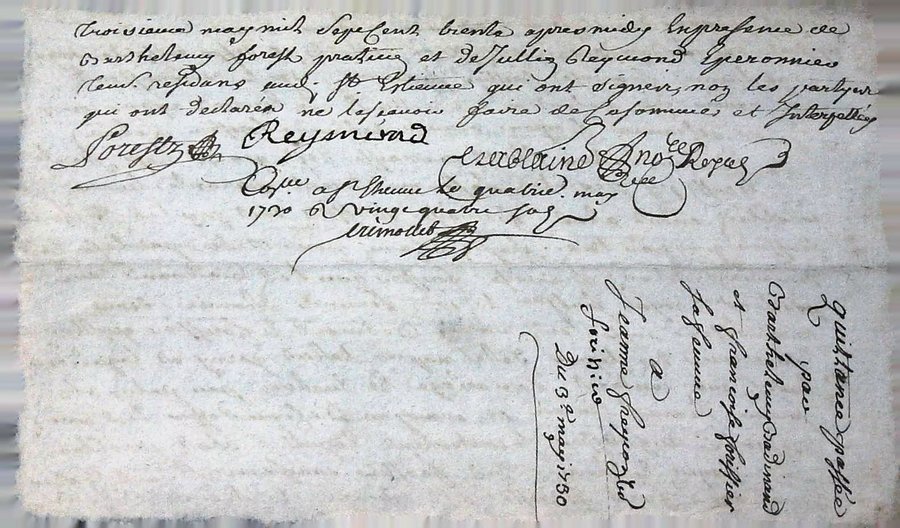 troisieme may mil sept cent trente apres midy En presence de
Barthelemy forest praticien et de Jullien Reymond Eperonnier
temoins residans aud. St Etienne qui ont signé, non les partyes
qui ont declarées ne le scavoir faire de ce sommées et Interpellées
Forest
Reymond
no.re Royal
Con.lle a St Etienne le quatre may
1730 vingt quatre sols
Quittance passée
par
Barthelemy
et francoise forissier
sa femme
a
Jeanne
forissier
Du 3e may 1730